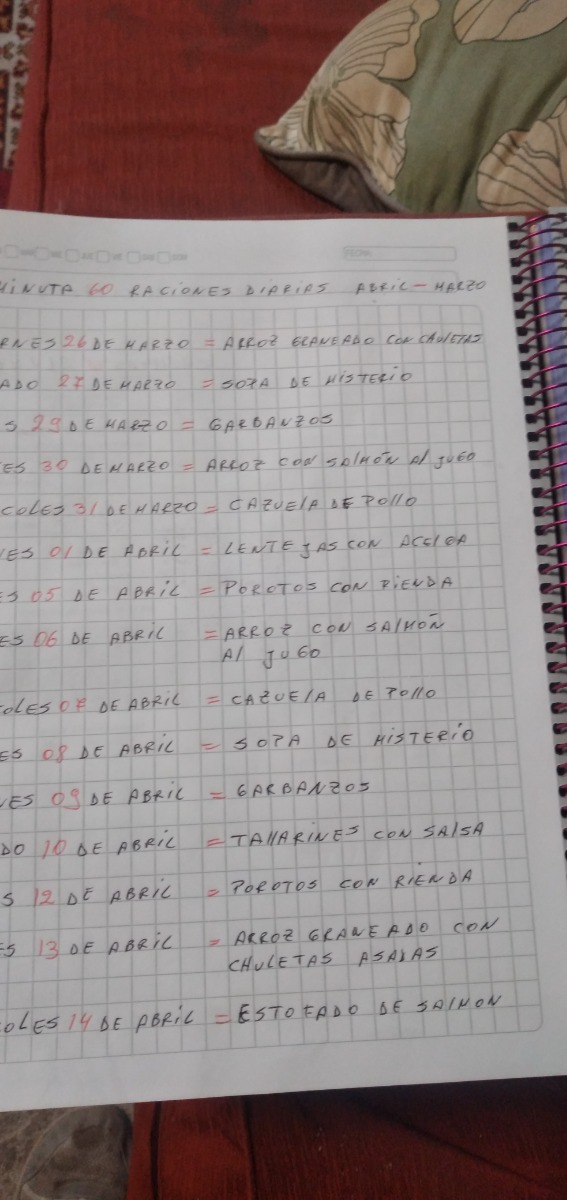 MINUTA 60 RACIONES DIARIAS ABRIL - MARZO
RNES 26 DE MARZO = ARROZ GRANEADO CON CHULETAS
ADO 27 DE MARZO = SOPA DE MISTERIO
S 29 DE MARZO = GARBANZOS
ES 30 DE MARZO = ARROZ CON SALMÓN Al JUGO
COLES 31 DE MARZO = CAZUElA DE POllO
ES 01 DE ABRIL = LENTEJAS CON ACElGA
S 05 DE ABRIL = POROTOS CON RIENDA
ES 06 DE ABRIL = ARROZ CON SALMÓN
Al JUGO
OLES 07 DE ABRIL = CAZUElA DE POllO
ES 08 DE ABRIL = SOPA DE MISTERIO
ES 09 DE ABRIL = GARBANZOS
DO 10 DE ABRIL = TAllARINES CON SALSA
S 12 DE ABRIL = POROTOS CON RIENDA
ES 13 DE ABRIL = ARROZ GRANEADO CON
CHULETAS ASADAS
OLES 14 DE ABRIL = ESTOFADO DE SALMON